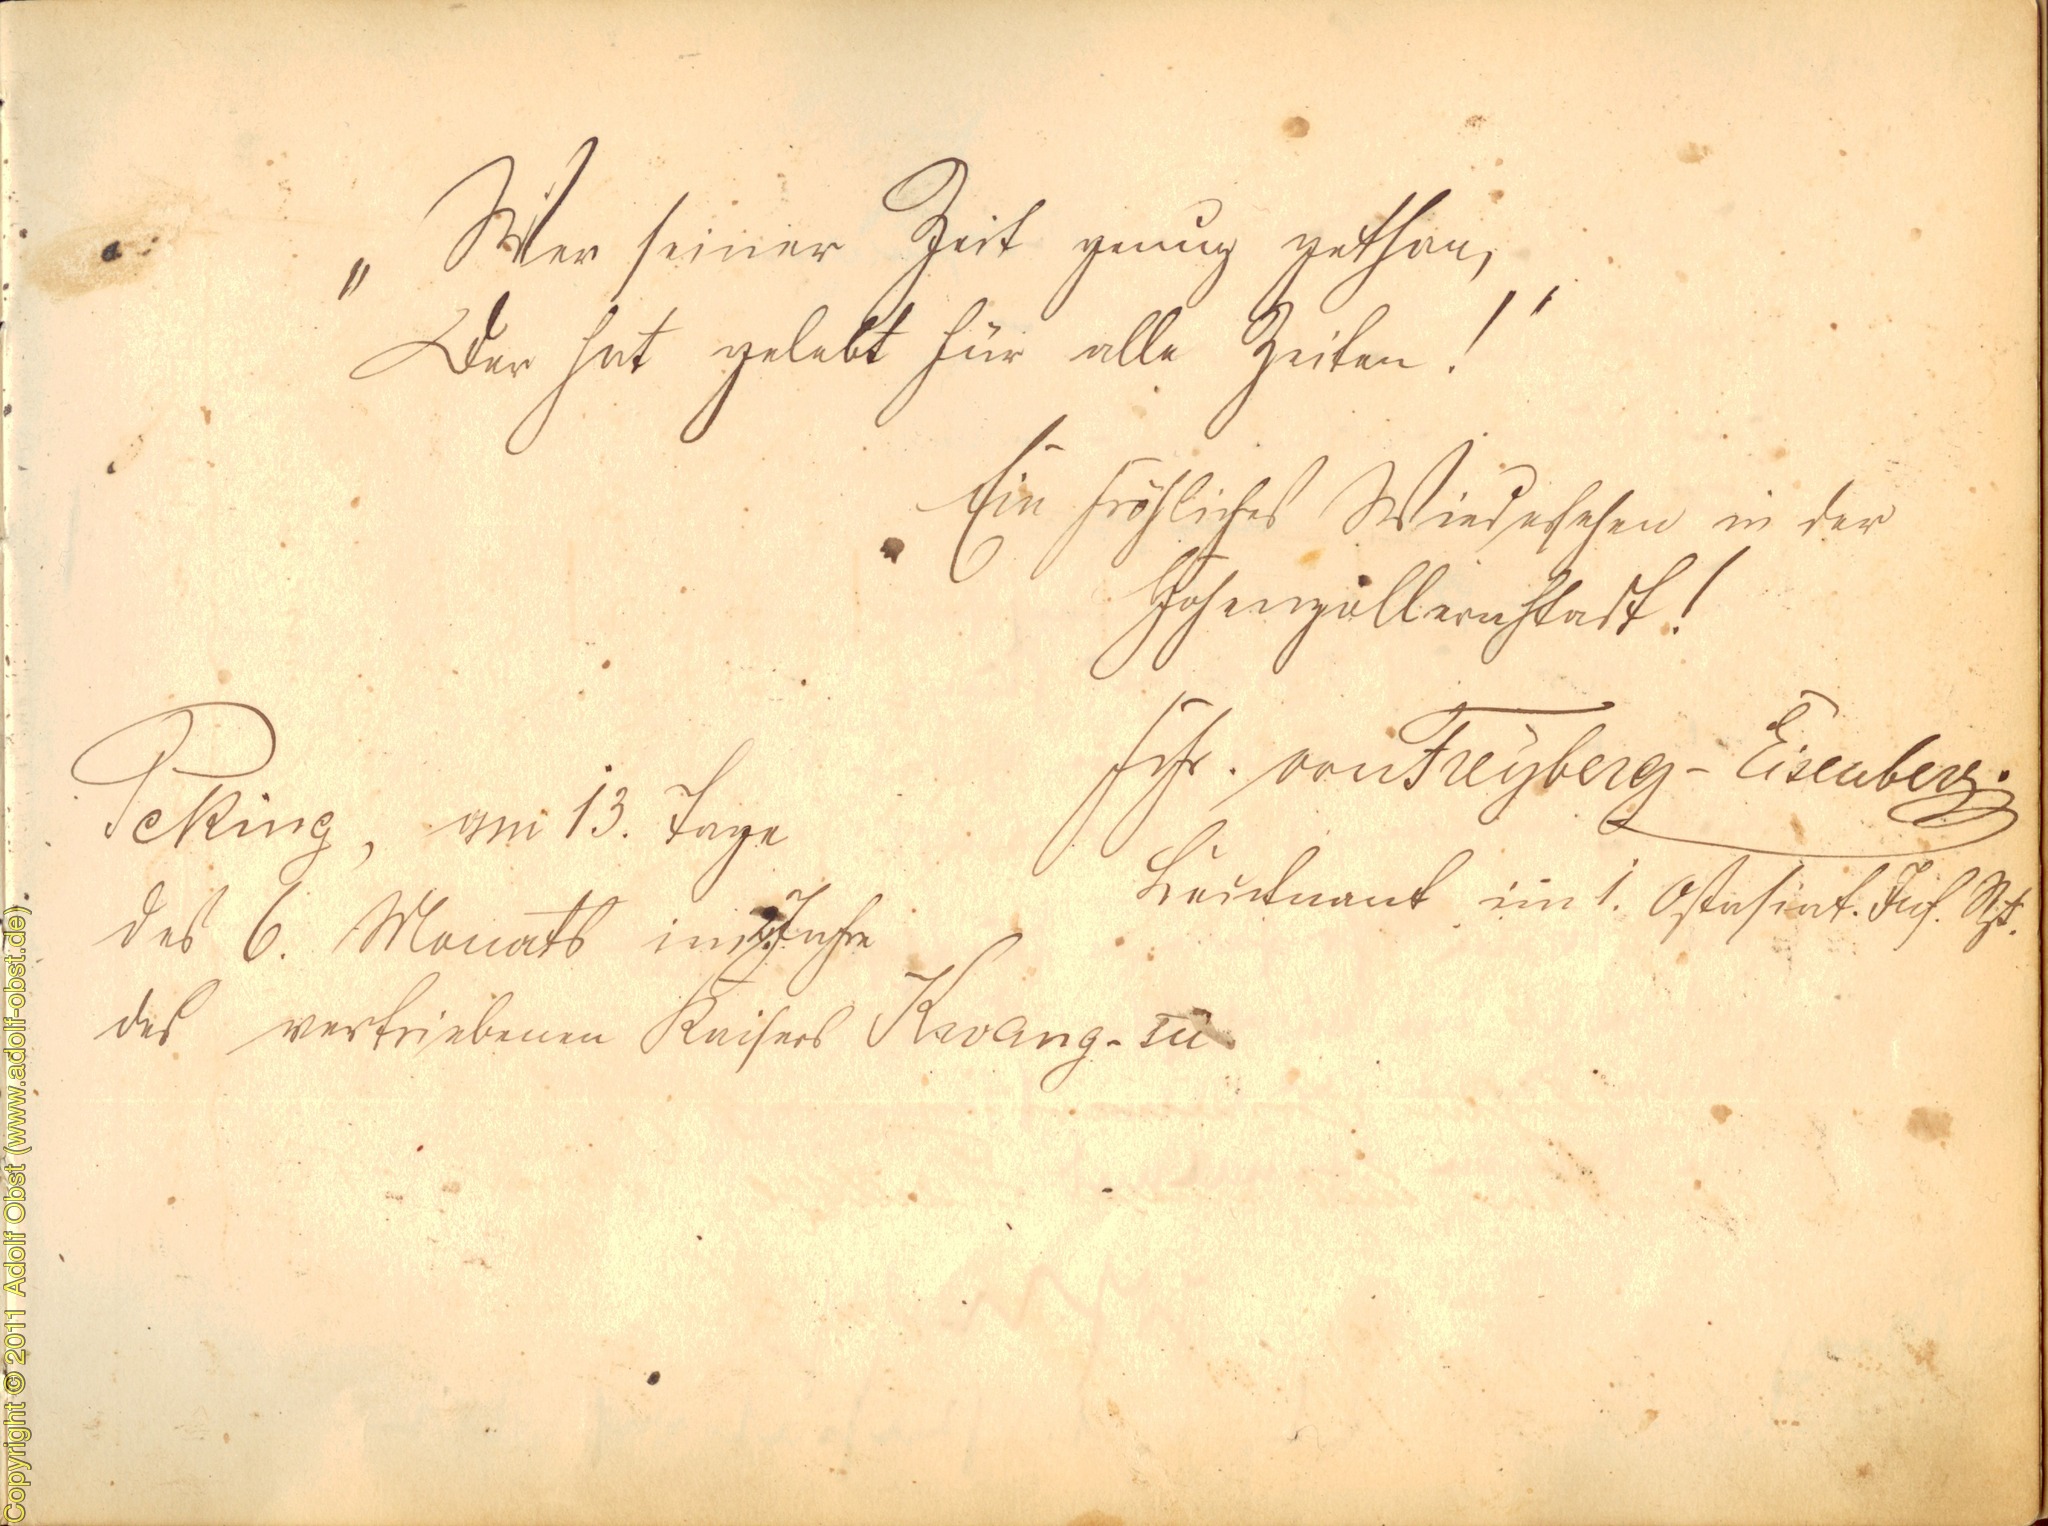 „Wer seiner Zeit genug gethan,
Der hat gelebt für alle Zeiten!"
Ein fröhliches Wiedersehen in der
Hohenzollernstadt!
Frhr. von Freyberg-Eisenberg.
Leutnant im 1. Ostasiat. Inf. Rgt.
Peking, am 13. Tage
des 6. Monats im Jahre
des vertriebenen Kaisers Kwang-sü.
Copyright © 2011 Adolf Obst (www.adolf-obst.de)